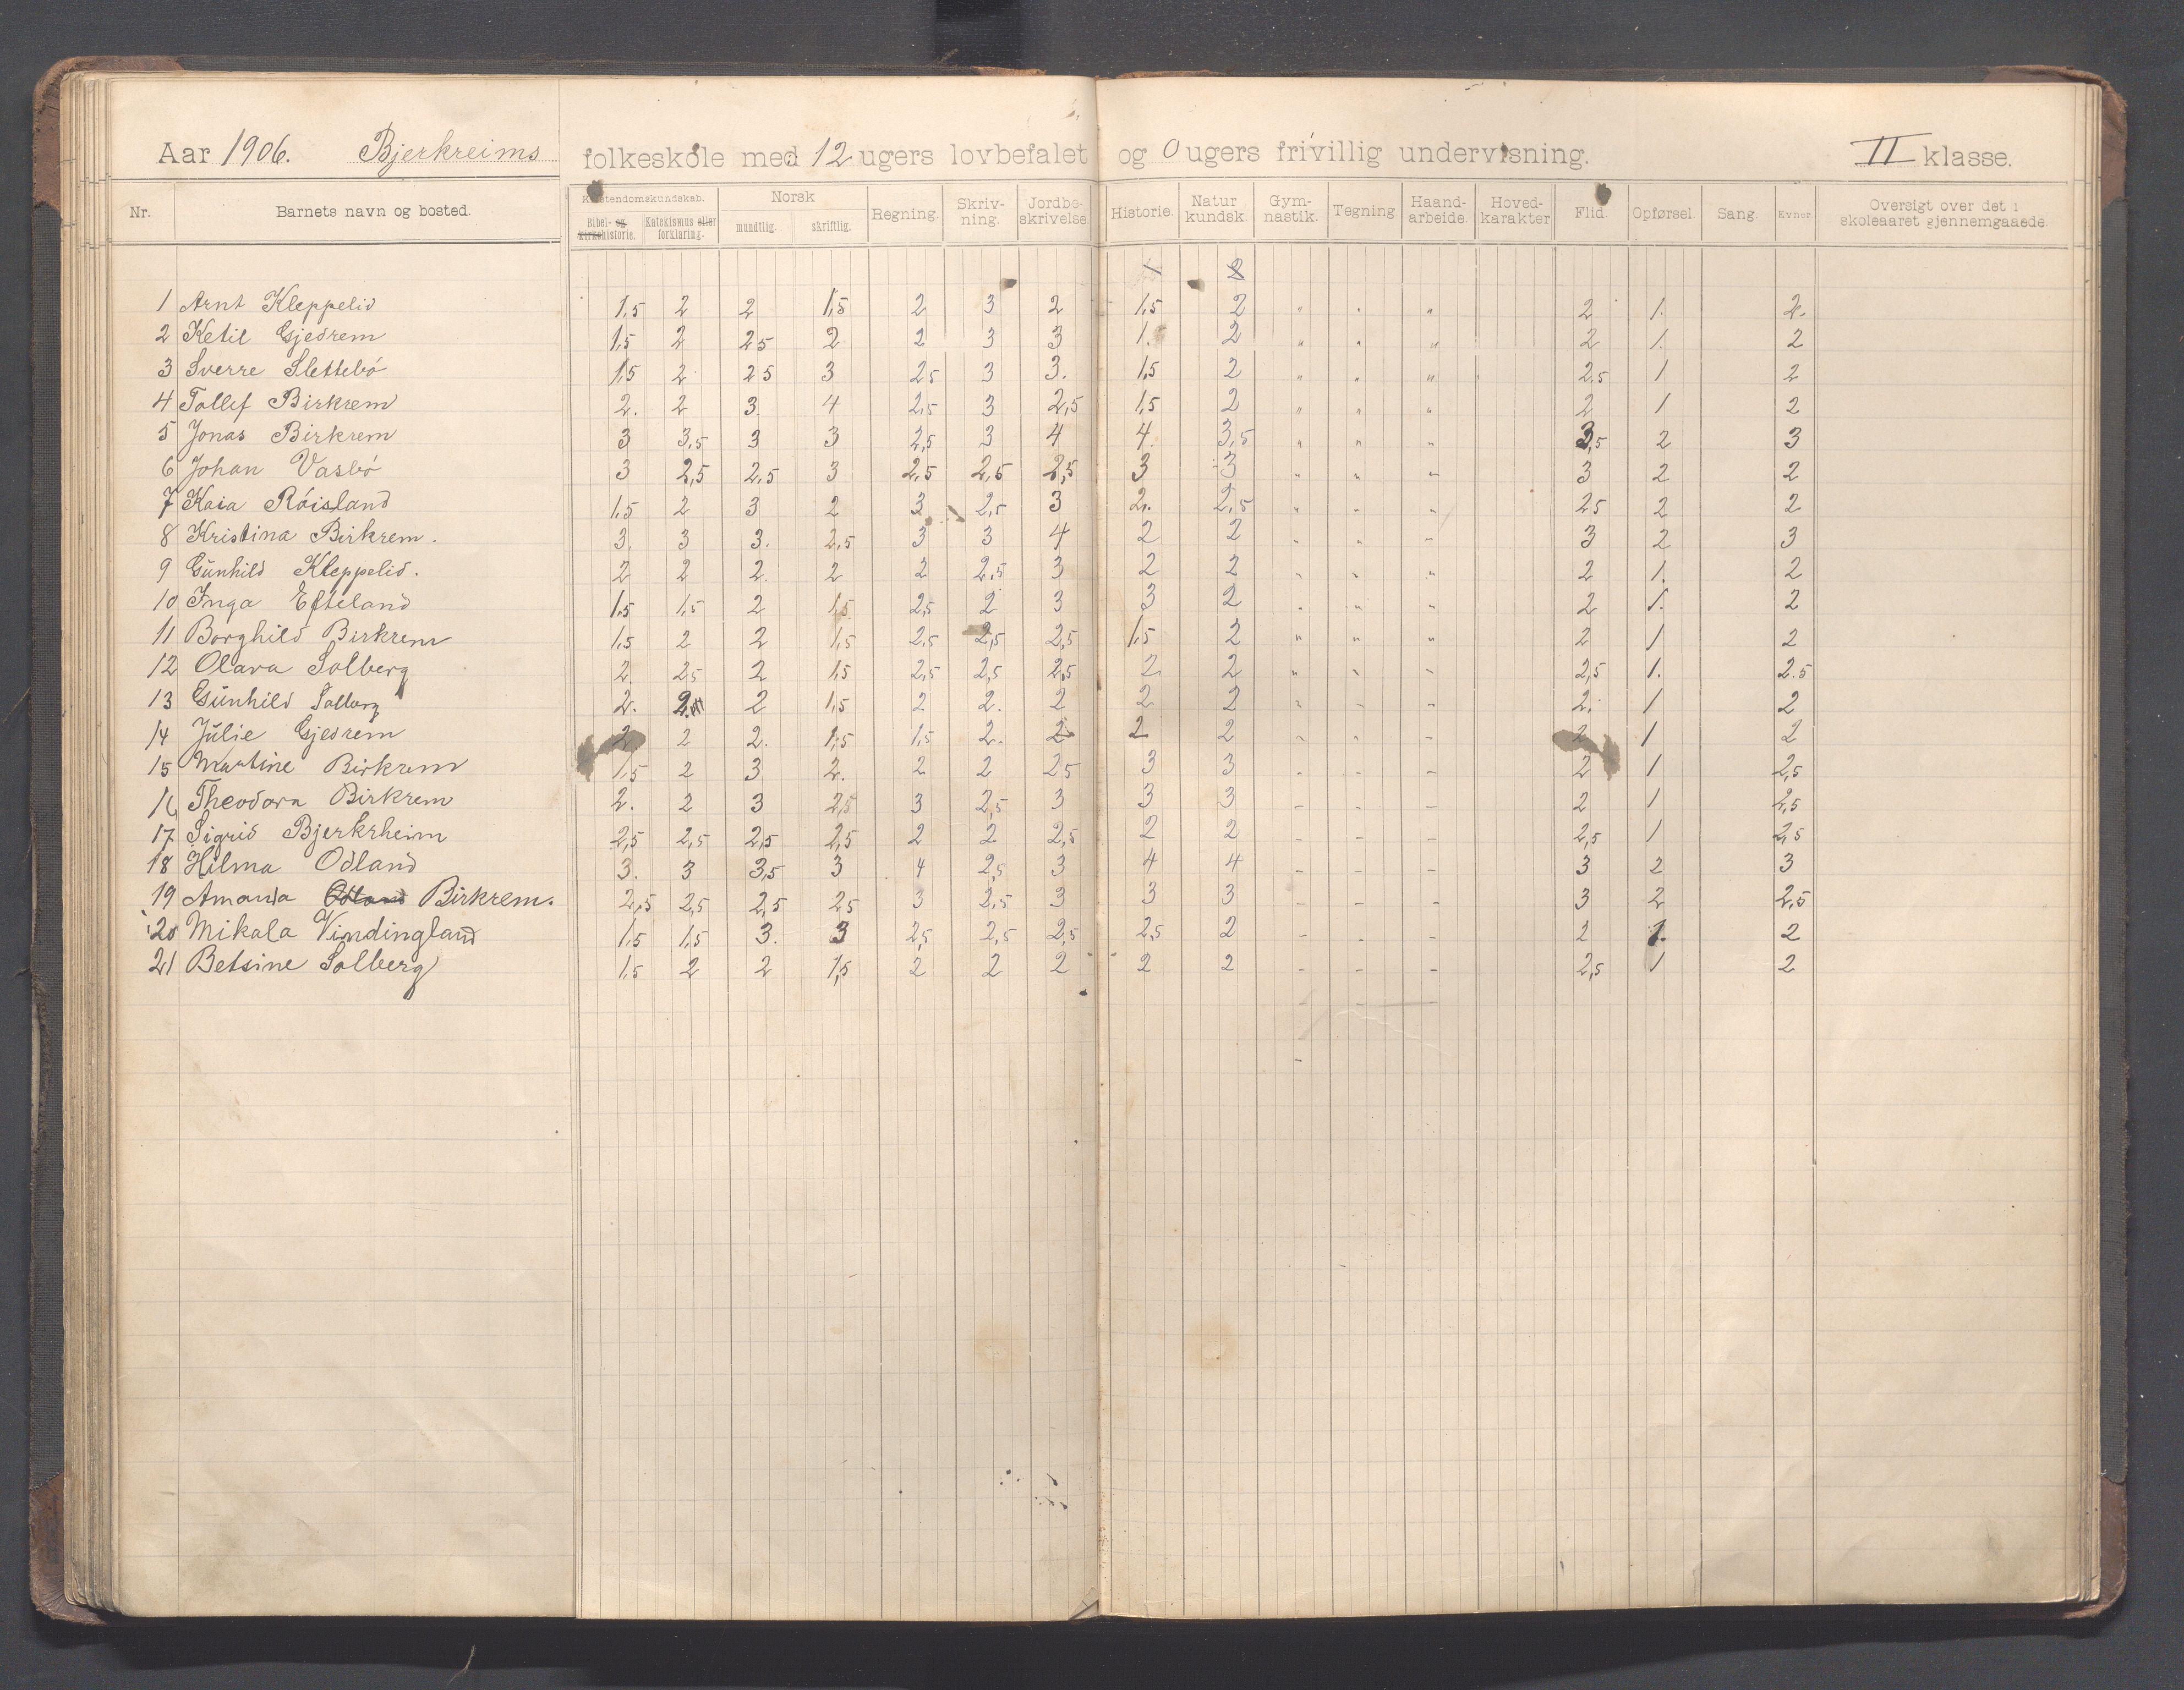 Aar 1906. Bjerkreims folkeskole med 12 ugers lovbefalet og 0 ugers frivillig undervisning. II klasse.
Nr. Barnets navn og bosted. Kristendomskundskab. Bibel- og kirkehistorie. Katekismus eller forklaring. Norsk mundtlig. skriftlig. Regning. Skriv-ning. Jordbe-skrivelse. Historie. Natur kundsk. Gym-nastik. Tegning Haand-arbeide. Hoved-karakter Flid. Opførsel. Sang. Evner Oversigt over det i skoleaaret gjennemgaaede.
1 Arnt Kleppelid 1,5 2 2 1,5 2 3 2 1,5 2 " " " 2 1. 2.
2 Ketil Gjedrem 1,5 2 2,5 2 2 3 3 1. 2 " " " 2 1. 2
3 Sverre Slettebö 1,5 2 2,5 3 2,5 3 3. 1,5 2 " " " 2,5 1 2
4 Tollef Birkrem 2. 2 3. 4 2,5 3 2,5 1,5 2 " " " 2 1 2
5 Jonas Birkrem 3 3,5 3 3 2,5 3 4 4. 3,5 " " " 3,5 2 3
6 Johan Vasbö 3 2,5 2,5 3 2,5 2,5 2,5 3 3 " " " 3 2 2
7 Kaia Röisland 1,5 2 3 2 3 2,5 3 2. 2,5 " " " 2,5 2 2
8 Kristina Birkrem. 3. 3 3. 2,5 3 3 4 2 2 " " - 3 2 3
9 Gŭnhild Kleppelid. 2 2 2. 2 2 2,5 3 2 2 " " " 2 1. 2
10 Inga Efteland 1,5 1,5 2 1,5 2,5 2 3 3 2 " " " 2 1. 2
11 Borghild Birkrem 1,5 2 2 1,5 2,5 2,5 2,5 1,5 2 " " " 2 1 2
12 Olava Solberg 2. 2,5 2 1,5 2,5 2,5 2,5 2 2 " " - 2,5 1. 2.5
13 Gŭnhild Solberg 2. 2 2 1,5 2 2. 2 2 2 - - - 2. 1 2
14 Jŭlie Gjedrem 2 2 2. 1,5 1,5 2. 2 2 2 - - - 2 1 2
15 Martine Birkrem 1,5 2 3 2. 2 2 2,5 3 3 - - - 2 1 2,5
16 Theodora Birkrem 2. 2 3 2,5 3 2,5 3 3 3 - - - 2 1 2,5
17 Sigrid Bjerkrheim 2,5 2,5 2,5 2,5 2 2 2,5 2 2 - - - 2,5 1 2,5
18 Hilma Odland 3. 3 3,5 3 4 2,5 3 4 4 - - - 3 2 3
19 Amanda Odland Birkrem. 2,5 2,5 2,5 2,5 3 2,5 3 3 3 - - - 3 2 2,5
20 Mikala Vindingland 1,5 1,5 3. 3 2,5 2,5 2,5 2,5 2 - - - 2 1. 2
21 Betsine Solberg 1,5 2 2 1,5 2 2 2 2 2 - - - 2,5 1 2